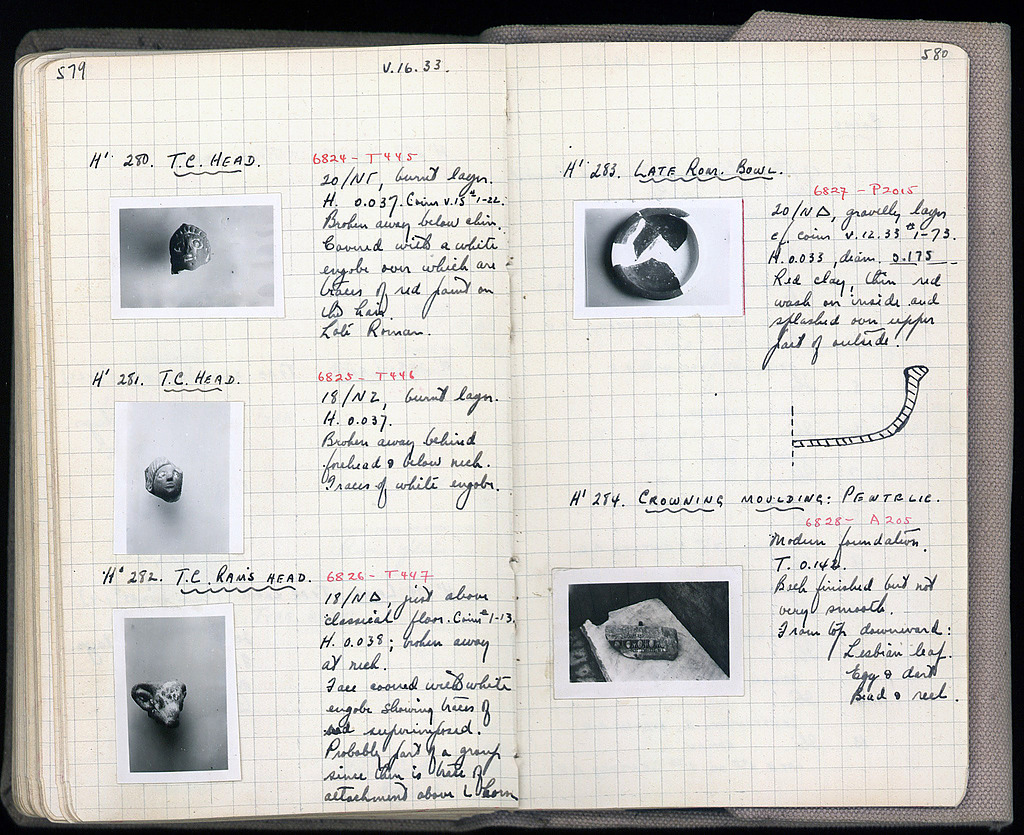 579
V.16.33.
H' 280. T.C. HEAD.
6824 - T445
20/ΝΓ, burnt layer.
H. 0.037. Coins V.15 #1-22.
Broken away below chin.
Covered with a white
engobe over which are
traces of red paint on
the hair.
Late Roman.
H' 281. T.C. HEAD.
6825 - T446
18/NZ, burnt layer.
H. 0.037.
Broken away behind
forehead & below neck.
Traces of white engobe.
H' 282. T.C. RAM'S HEAD.
6826 - T447
18/ΝΔ, just above
classical floor. Coins #1-13.
H. 0.038; broken away
at neck.
Face covered with white
engobe showing traces of
red superimposed.
Probably part of a group
since there is trace of
attachment above L horn
580
H' 283. LATE ROM. BOWL.
6827 - P2015
20/ΝΔ, gravelly layer
cf. coins V.12.33 #1-73.
H. 0.033, diam. 0.175
Red clay; thin red
wash on inside and
splashed over upper
part of outside.
H' 284. CROWNING MOULDING: PENTELIC.
6828 - A205
Modern foundation.
T. 0.142.
Back finished but not
very smooth.
From top downward:
Lesbian leaf.
Egg & dart
Bead & reel.